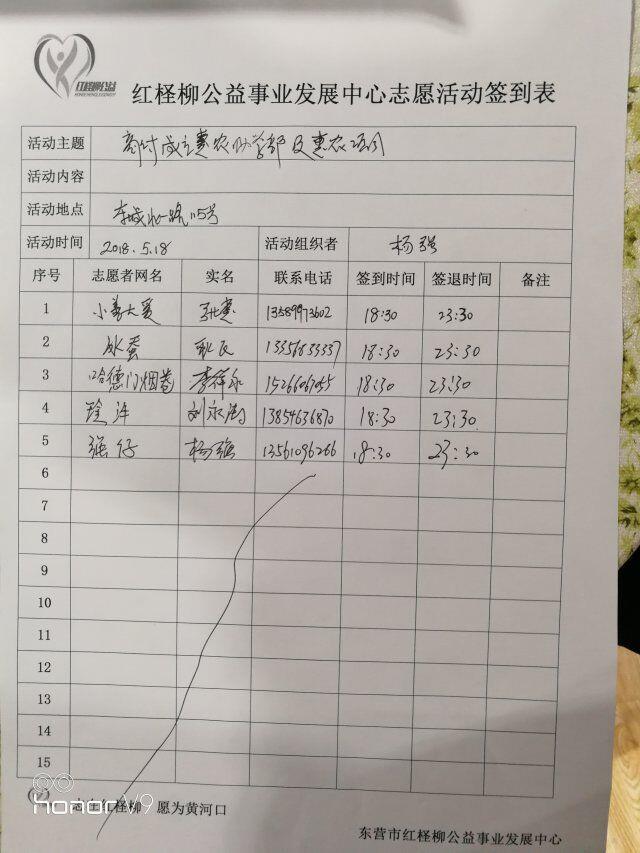 红柽柳公益
红柽柳公益事业发展中心志愿活动签到表
活动主题 商讨成立惠农办学部及惠农项目
活动内容
活动地点 东城 路115号
活动时间 2018.5.18 活动组织者 杨强
序号 志愿者网名 实名 联系电话 签到时间 签退时间 备注
1 小善大爱 张惠 13589973602 18:30 23:30
2 冰蚕 耿民 13356633337 18:30 23:30
3 哈德门烟卷 李祥永 18:30 23:30
4 刘永涛 13854636870 18:30 23:30
5 强仔 杨强 13561096266 18:30 23:30
6
7
8
9
10
11
12
13
14
15
志在红柽柳 愿为黄河口
honor V9
东营市红柽柳公益事业发展中心